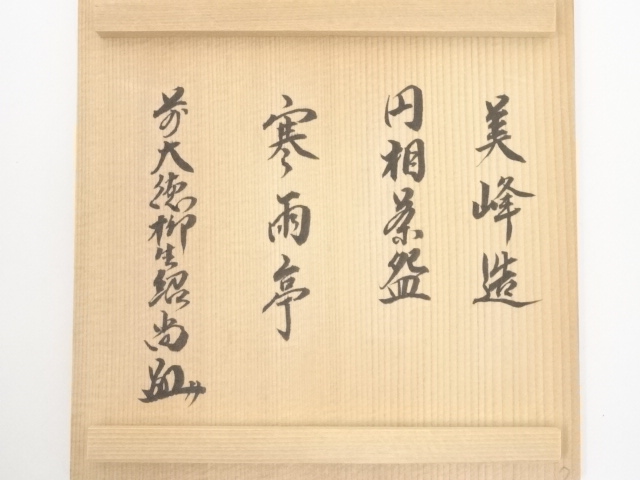 美峰造
円相茶盌
寒雨亭
前大徳柳生紹尚